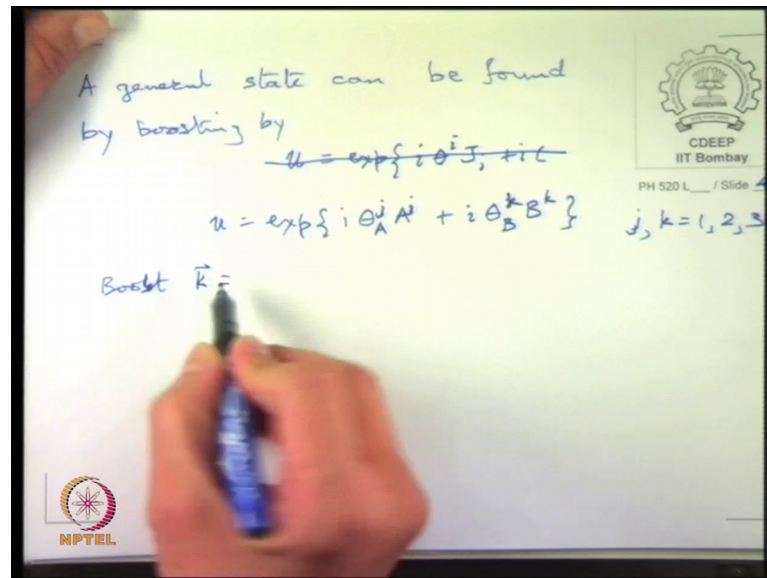 A general state can be found
by boosting by
u = exp{ i θ^i J_i + i
u = exp{ i θ_A^j A^j + i θ_B^k B^k }   j, k = 1, 2, 3
Boost k⃗ =
CDEEP
IIT Bombay
PH 520 L___ / Slide 4
NPTEL